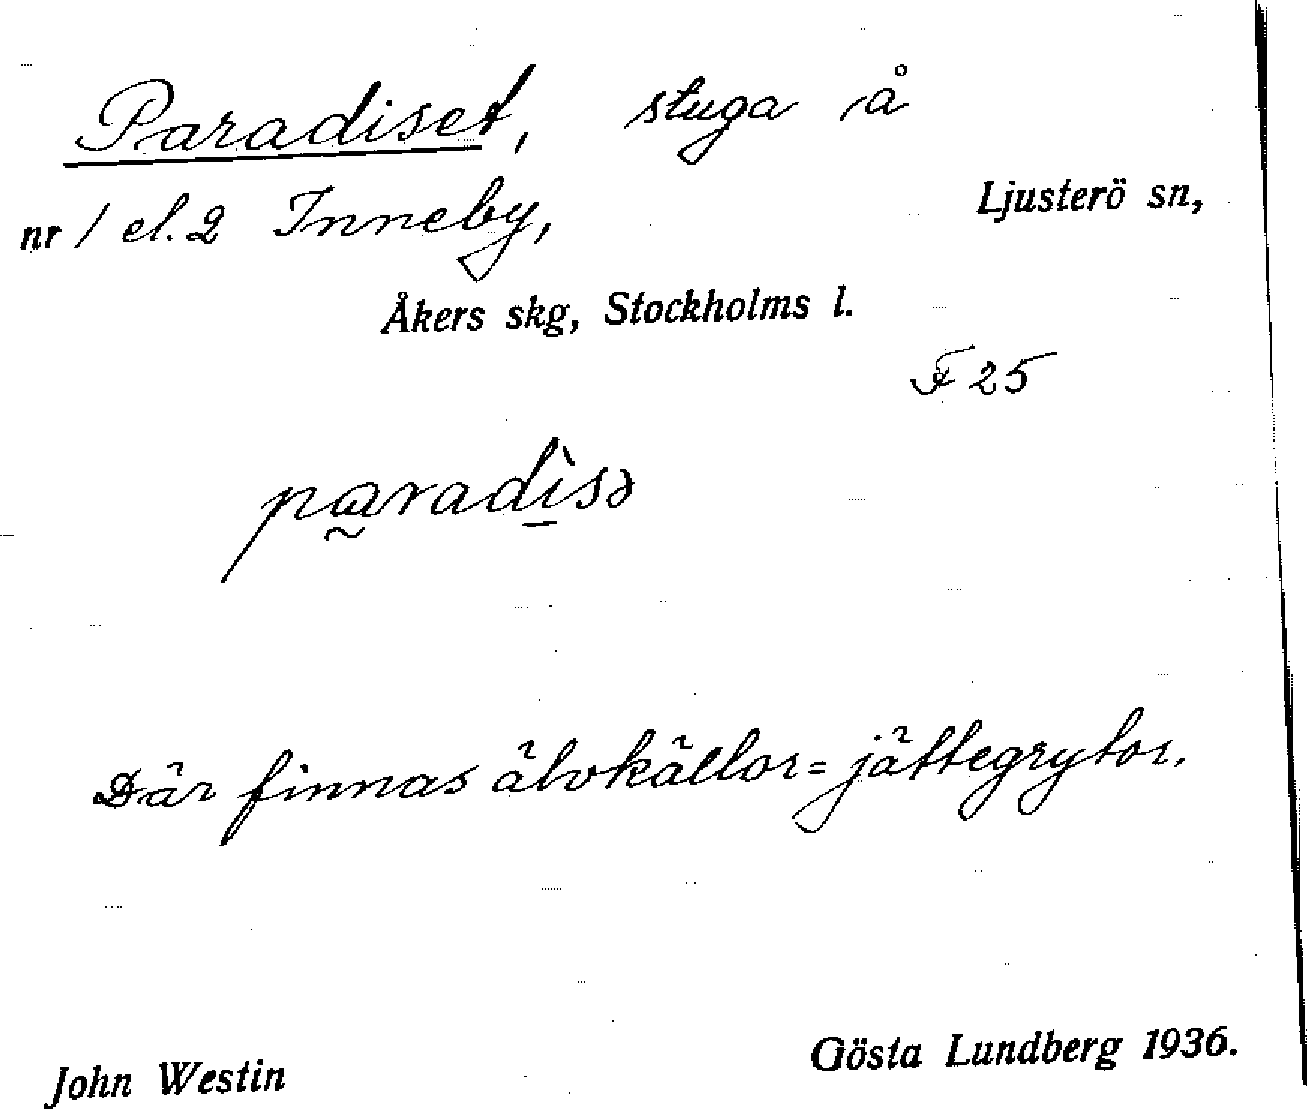 Paradiset, stuga å
nr 1 el. 2 Inneby, Ljusterö sn,
Åkers skg, Stockholms l.
F 25
paradìsə
Där finnas älvkällor = jättegrytor.
John Westin Gösta Lundberg 1936.